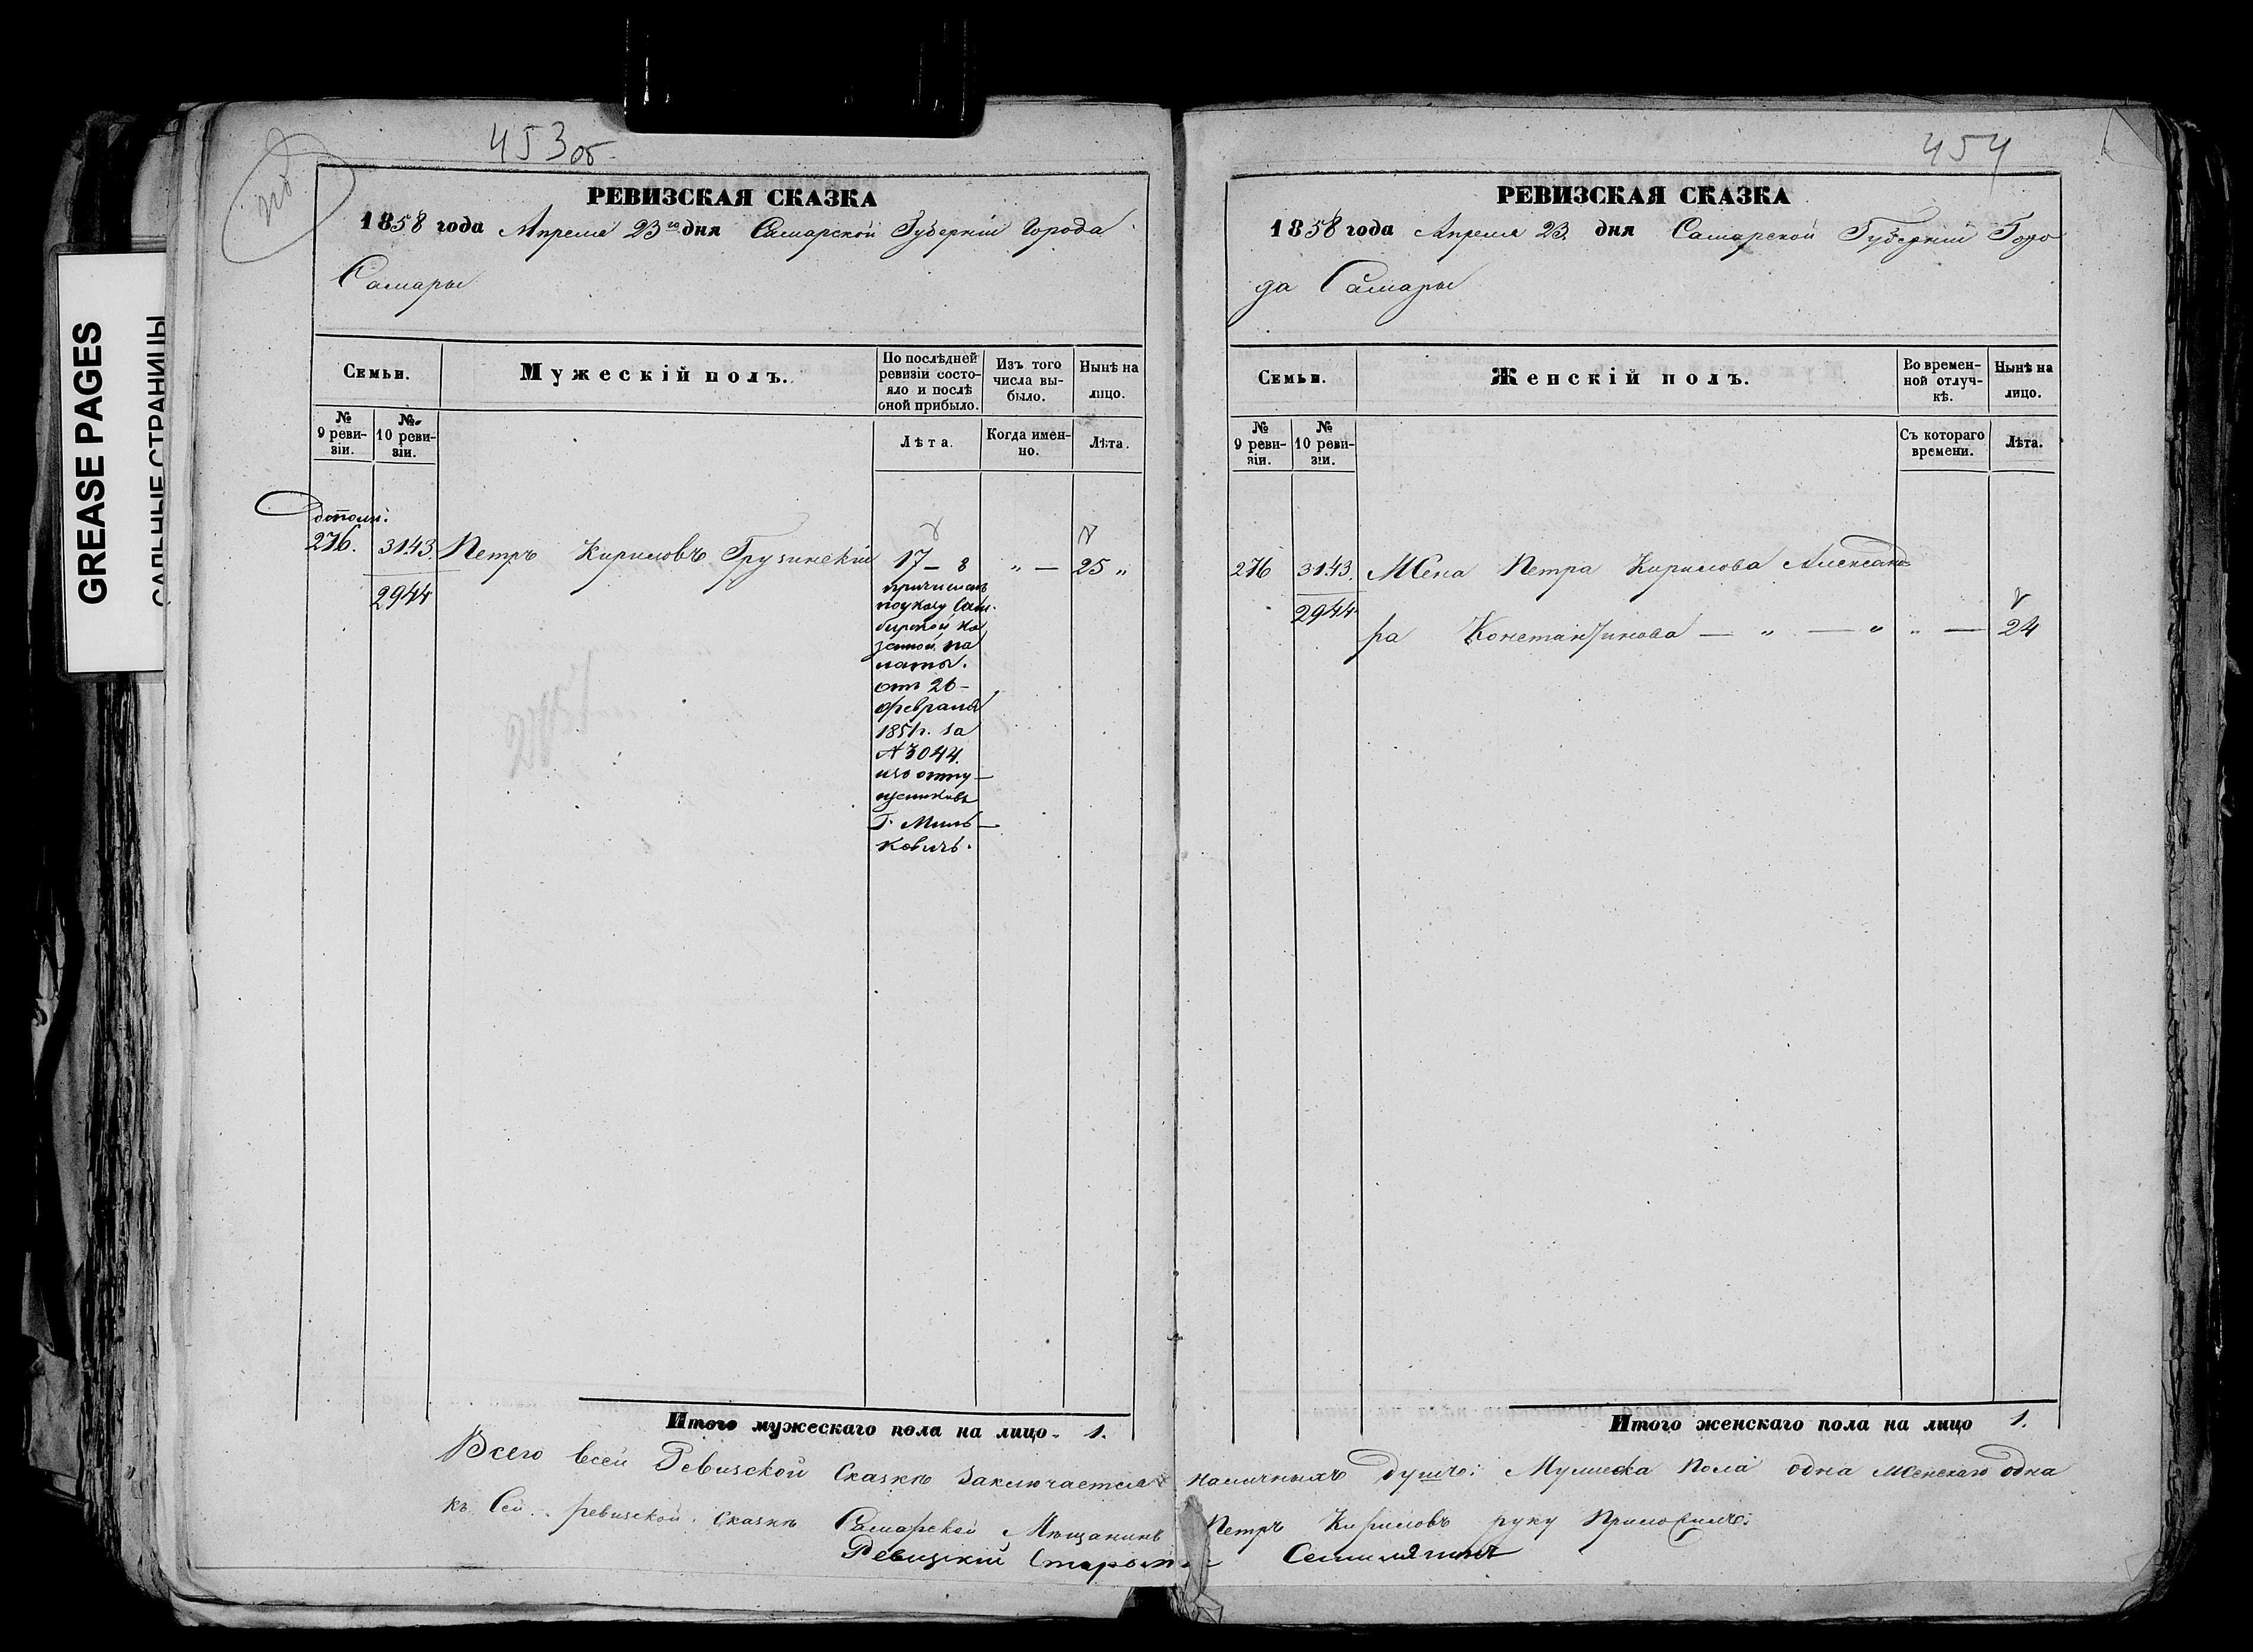 GREASE PAGES
САЛЬНЫЕ СТРАНИЦЫ
453об.
РЕВИЗСКАЯ СКАЗКА
1858 года Апреля 23го дня Самарской Губерніи города
Самары
Семьи.
Мужескій полъ.
По послѣдней ревизіи состояло и послѣ оной прибыло.
Изъ того числа выбыло.
Нынѣ на лицо.
№ 9 ревизіи.
№ 10 ревизіи.
Лѣта.
Когда именно.
Лѣта.
дополн.
276. 3143. Петръ Кириловъ Грузинскій 17 – 8 „ — 25 „
2944
причисленъ
по указу Сим
бирской Ка
зенной Па
латы.
отъ 26 –
февраля
1851г. за
№ 3044.
изъ отпу –
щениковъ
Г. Миль –
ковичъ.
Итого мужескаго пола на лицо. 1.
Всего всей Ревизской Сказкѣ Заключается
къ Сей ревизской Сказкѣ Самарской Мѣщанинъ
454
РЕВИЗСКАЯ СКАЗКА
1858 года Апреля 23. дня Самарской Губерніи Горо
да Самары
Семьи.
Женскій полъ.
Во временной отлучкѣ.
Нынѣ на лицо.
№ 9 ревизіи.
№ 10 ревизіи.
Съ котораго времени.
Лѣта.
276 3143. Жена Петра Кирилова Александ
2944
ра Константинова — „ — „ „ — 24
Итого женскаго пола на лицо 1.
наличныхъ душъ: Мужеска пола одна женскаго одна
Петръ Кириловъ руку Приложилъ: